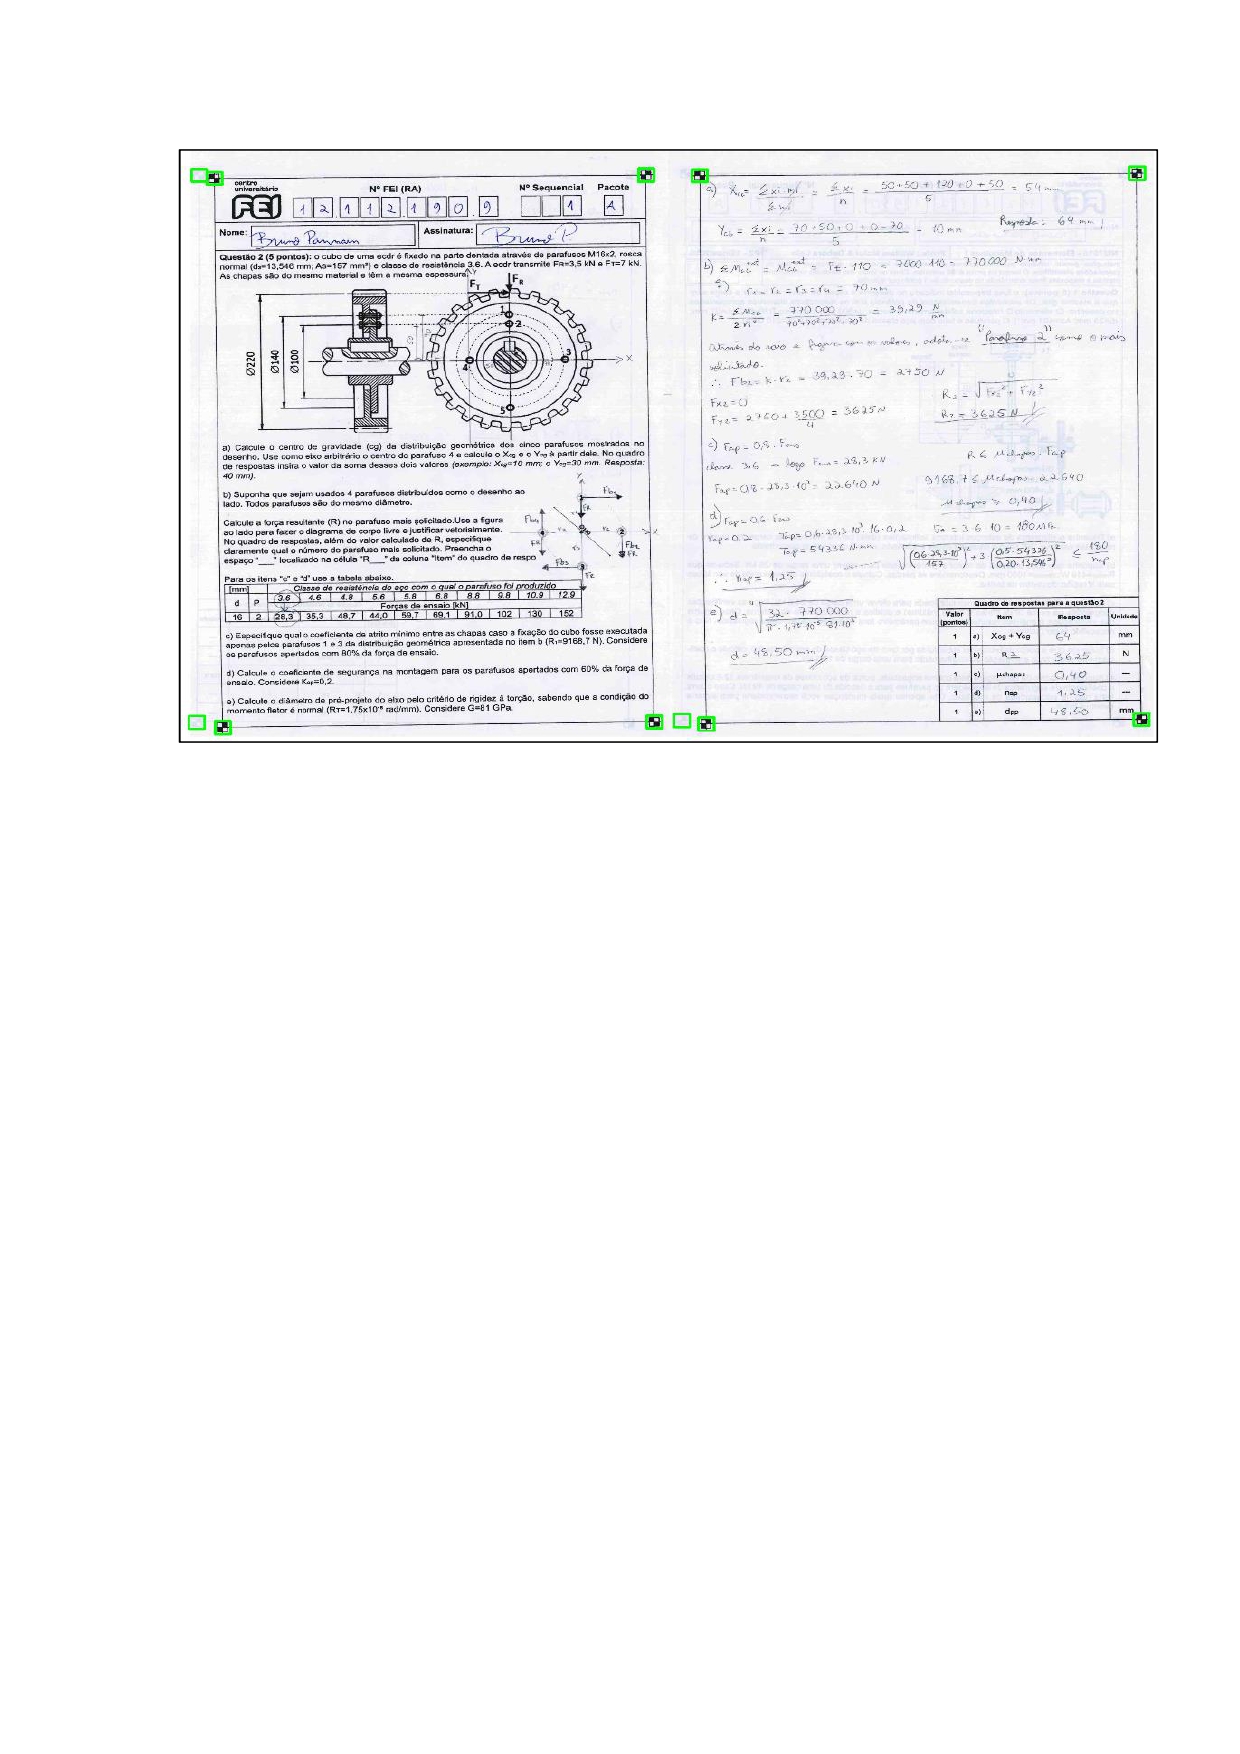 centro
universitário
FEI
Nº FEI (RA)
Nº Sequencial
Pacote
1 2 1 1 2 1 9 0 9
1
A
Nome:
Bruno
Assinatura:
Bruno P.
Questão 2 (5 pontos): o cubo de uma ecdr é fixado na parte dentada através de parafusos M16x2, rosca
normal (d₃=13,546 mm; As=157 mm²) e classe de resistência 3.6. A ecdr transmite FR=3,5 kN e FT=7 kN.
As chapas são do mesmo material e têm a mesma espessura.
Y
FT
FR
1
2
3
4
5
X
Ø220
Ø140
Ø100
a) Calcule o centro de gravidade (cg) da distribuição geométrica dos cinco parafusos mostrados no
desenho. Use como eixo arbitrário o centro do parafuso 4 e calcule o Xcg e o Ycg à partir dele. No quadro
de respostas insira o valor da soma desses dois valores (exemplo: Xcg=10 mm; o Ycg=30 mm. Resposta:
40 mm).
b) Suponha que sejam usados 4 parafusos distribuídos como o desenho ao
lado. Todos parafusos são do mesmo diâmetro.
Calcule a força resultante (R) no parafuso mais solicitado. Use a figura
ao lado para fazer o diagrama de corpo livre e justificar vetorialmente.
No quadro de respostas, além do valor calculado de R, especifique
claramente qual o número do parafuso mais solicitado. Preencha o
espaço "___" localizado na célula "R___" da coluna "Item" do quadro de respo
Para os itens "c" e "d" use a tabela abaixo.
[mm] Classe de resistência do aço com o qual o parafuso foi produzido
d P 3.6 4.6 4.8 5.6 5.8 6.8 8.8 9.8 10.9 12.9
Forças de ensaio [kN]
16 2 28,3 35,3 48,7 44,0 59,7 69,1 91,0 102 130 152
c) Especifique qual o coeficiente de atrito mínimo entre as chapas caso a fixação do cubo fosse executada
apenas pelos parafusos 1 e 3 da distribuição geométrica apresentada no item b (R₁=9168,7 N). Considere
os parafusos apertados com 80% da força de ensaio.
d) Calcule o coeficiente de segurança na montagem para os parafusos apertados com 60% da força de
ensaio. Considere Kap=0,2.
e) Calcule o diâmetro de pré-projeto do eixo pelo critério de rigidez à torção, sabendo que a condição do
momento fletor é normal (RT=1,75x10⁻⁵ rad/mm). Considere G=81 GPa.
a) XCG = Σxi·mi / Σmi = Σxi / n = 50+50+120+0+50 / 5 = 54 mm
YCG = Σxi / n = 70+50+0+0-70 / 5 = 10 mm Resposta: 64 mm
b) ΣMCG ext = MCG ext = FT·110 = 7000·110 = 770000 N·mm
r₁=r₂=r₃=r₄ = 70mm
K= ΣMCG / Σri² = 770000 / 70²+70²+70²+70² = 39,29 N/mm
"Parafuso 2" como o mais
solicitado.
∴ Fb2 = K·r2 = 39,29·70 = 2750 N
FX2=0
FY2= 2750+ 3500/4 = 3625N
R2 = √FX2²+FY2²
R2=3625 N
c) Fap=0,8·Fens
classe 3.6 → logo Fens=28,3 KN
Fap=0,8·28,3·10³= 22.640 N
R ≤ μchapas·Fap
9168,7 ≤ μchapas·22640
μchapas ≥ 0,40
d) Fap=0,6 Fens
Kap=0.2 Tap=0,6·28,3·10³·16·0,2
Tap=54336 N·mm
= 3·6·10 = 180MPa
√(0,6·28,3·10³/157)²+3(0,5·54336/0,20·13,546³)² ≤ 180/nap
∴ nap = 1,25
e) d= ⁴√32·770000 / π·1,75·10⁻⁵·81·10³
d=48,50 mm
Quadro de respostas para a questão 2
Valor (pontos) Item Resposta Unidade
1 a) Xcg + Ycg 64 mm
1 b) R 2 3625 N
1 c) μchapas 0,40 —
1 d) nap 1,25 —
1 e) dpp 48,50 mm